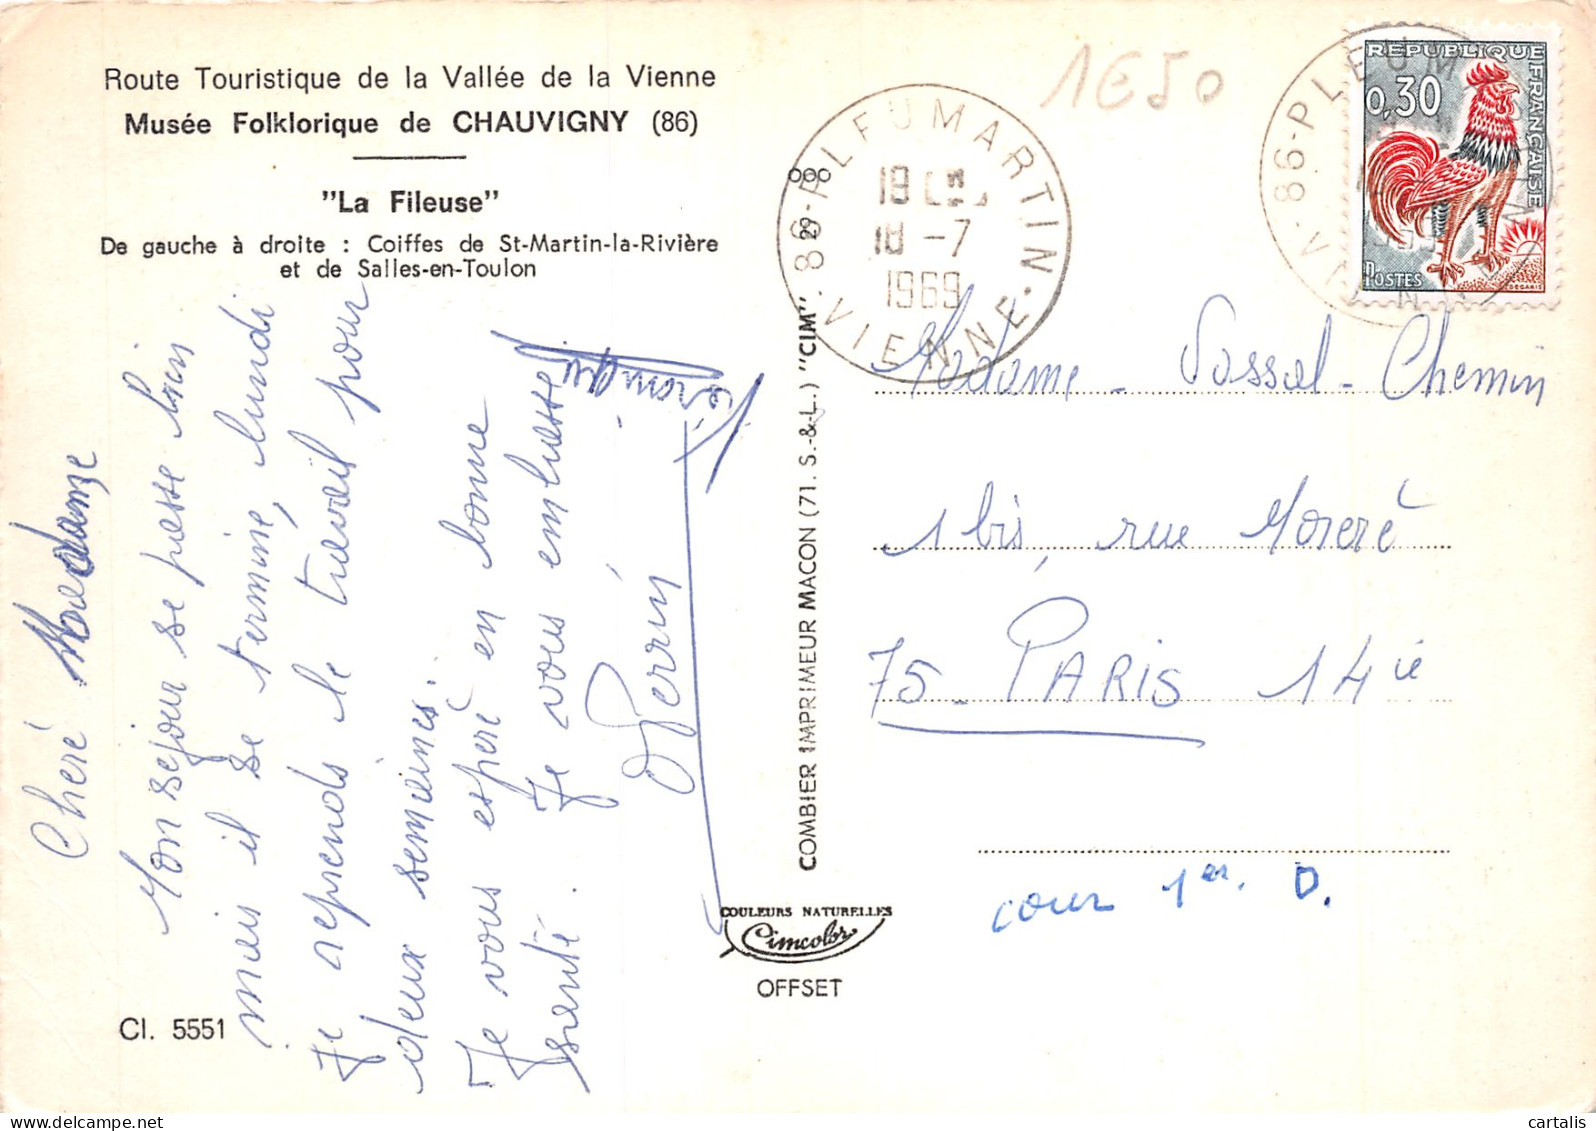 Route Touristique de la Vallée de la Vienne
Musée Folklorique de CHAUVIGNY (86)
"La Fileuse"
De gauche à droite : Coiffes de St-Martin-la-Rivière
et de Salles-en-Toulon
Cheré Madame
Mon sejour se passe bien
mais il se termine, lundi
Je reprends le travail pour
deux semaines.
Je vous esperè en bonne
santé. Je vous embrasse
Perrin
Cl. 5551
COMBIER IMPRIMEUR MACON (71. S.-&-L.) "CIM"
COULEURS NATURELLES
Cimcolor
OFFSET
1E50
86-PLEUMARTIN
18
18 -7
1969
VIENNE
86-PLEUM
VIENNE
REPUBLIQUE FRANÇAISE
0,30
POSTES
DECARIS
Madame Vassal - Chemin
1 bis, rue Moreré
75 - PARIS 14 iè
cour 1er. D.
delcampe.net
cartalis